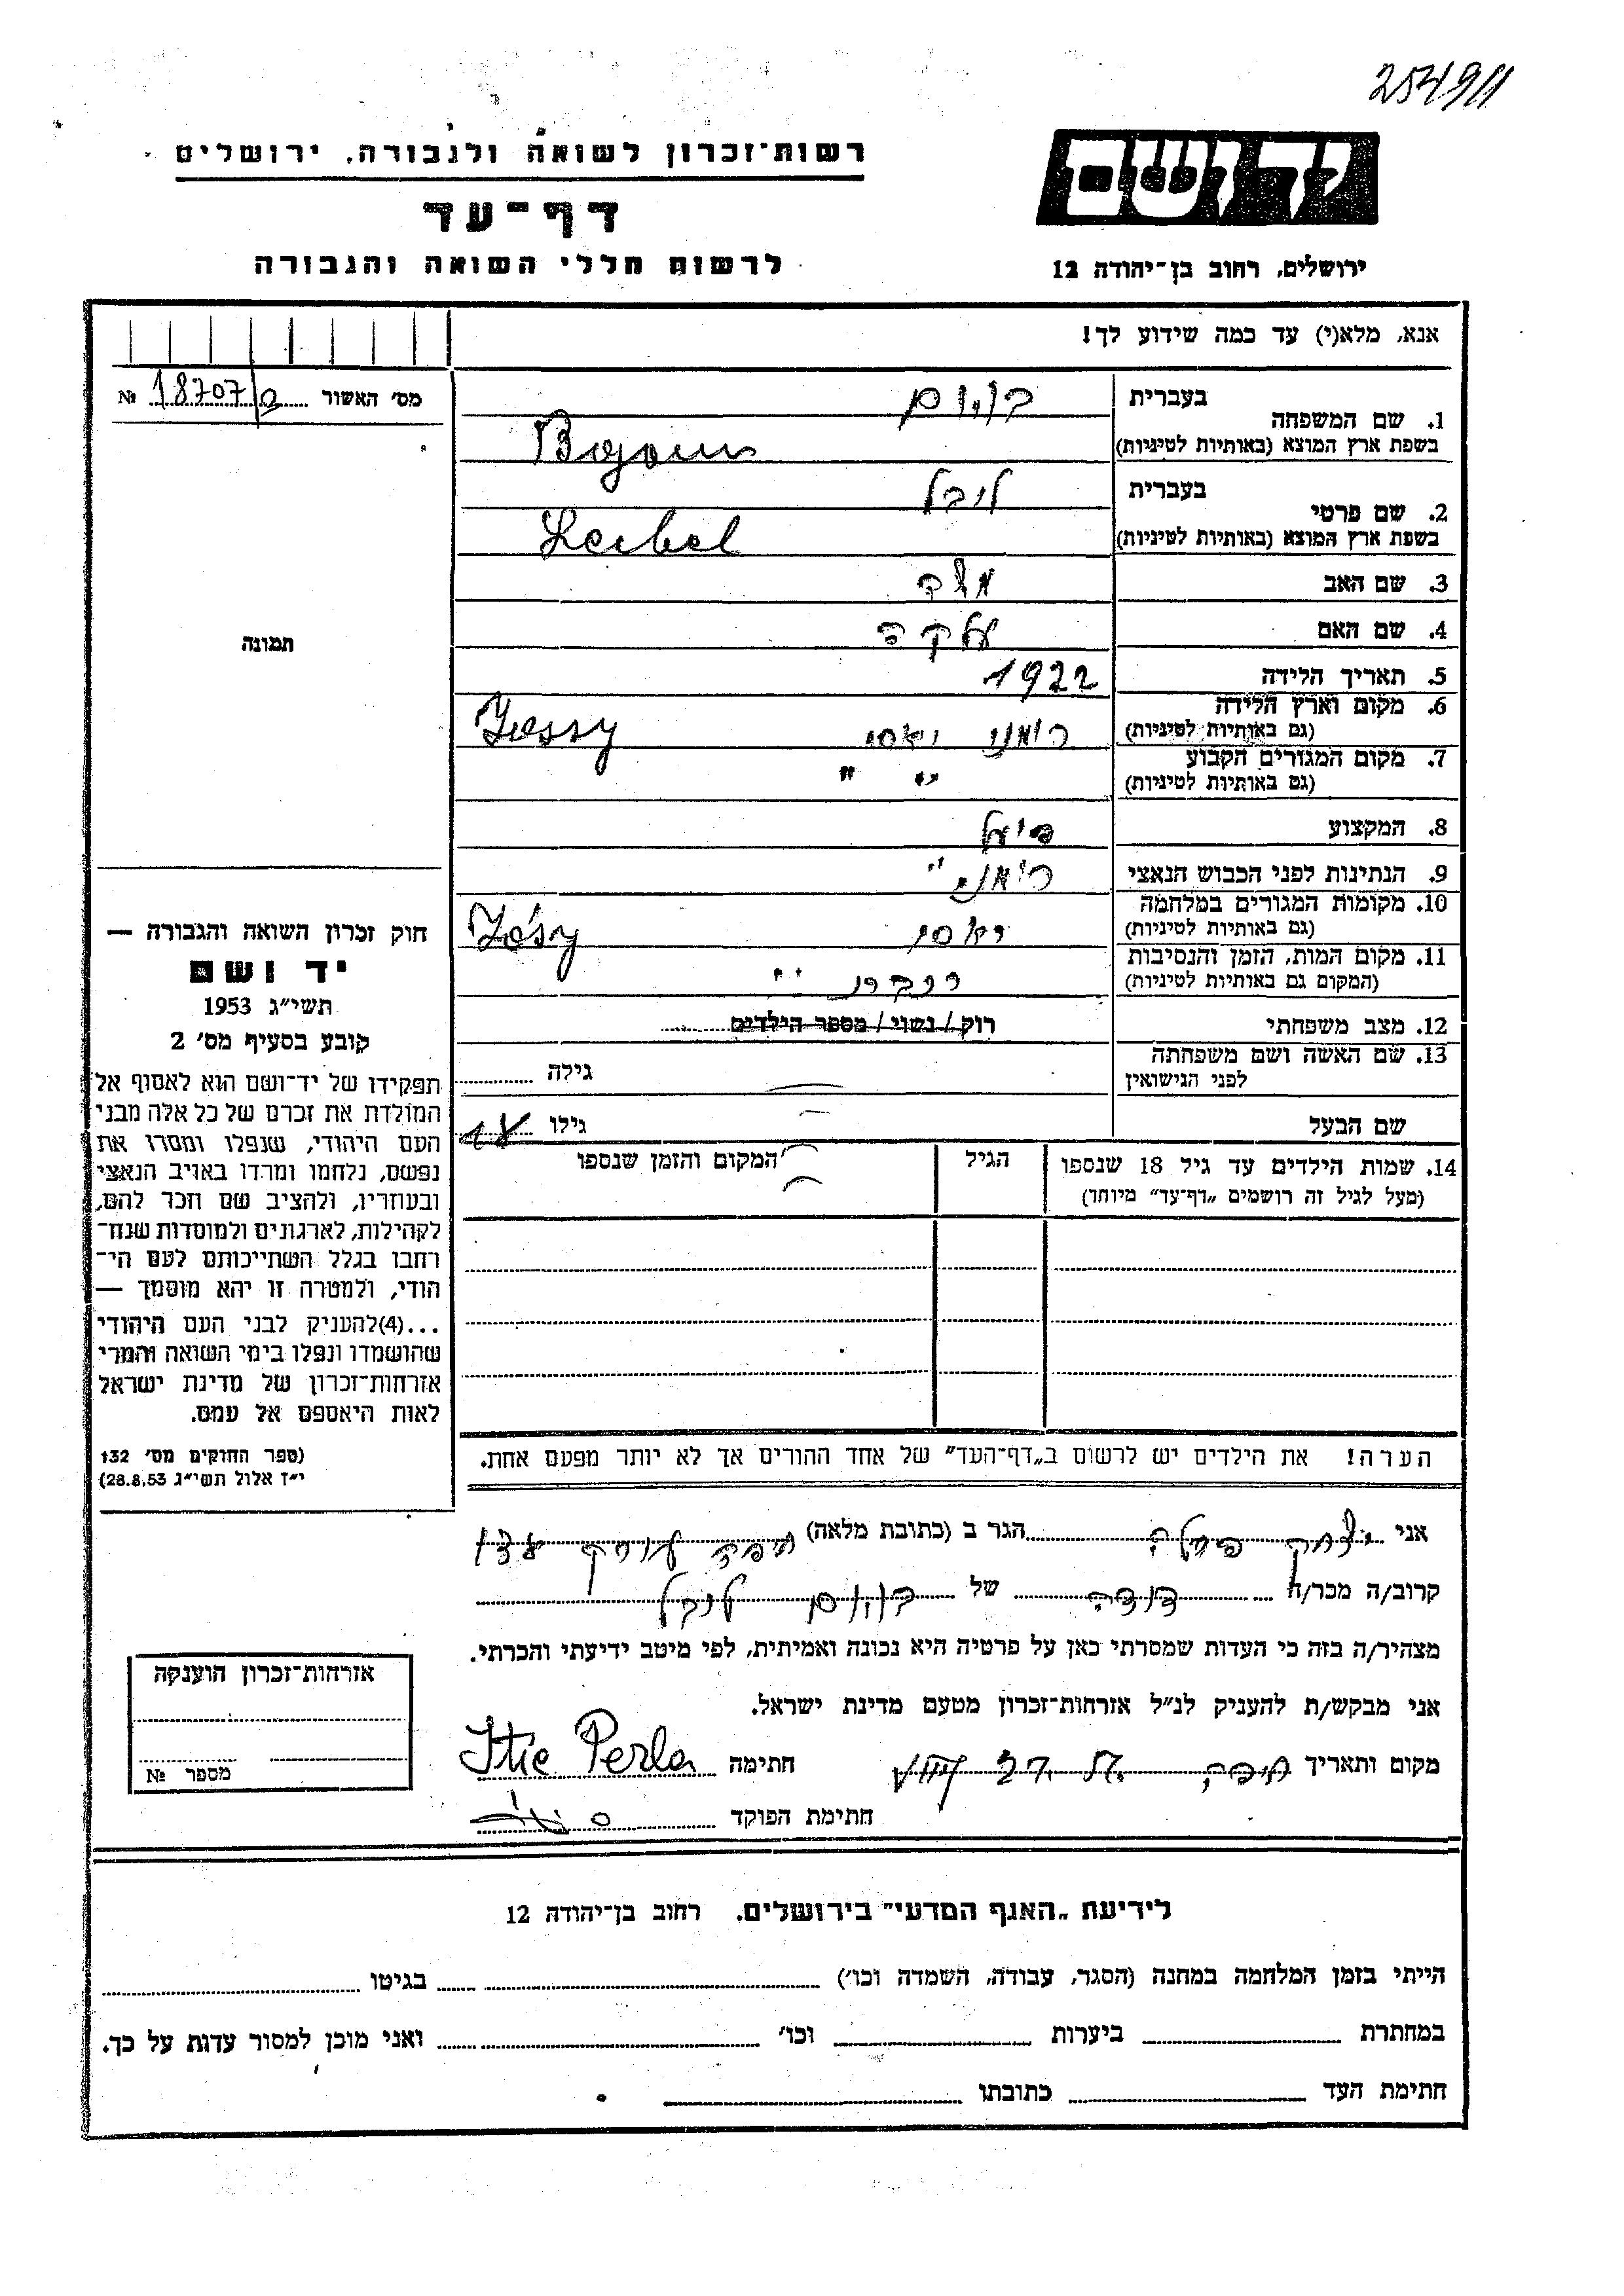 254911
יד ושם
ירושלים, רחוב בן-יהודה 12
רשות-זכרון לשואה ולגבורה, ירושלים
דף-עד
לרשום חללי השואה והגבורה
אנא, מלא(י) עד כמה שידוע לך!
מס' האשור № 18707/
1. שם המשפחה בעברית
בשפת ארץ המוצא (באותיות לטיניות)
2. שם פרטי בעברית ליבל
בשפת ארץ המוצא (באותיות לטיניות) Leibel
3. שם האב משה
4. שם האם
5. תאריך הלידה 1922
6. מקום וארץ הלידה רומני יאסי
(גם באותיות לטיניות) Jassy
7. מקום המגורים הקבוע " "
(גם באותיות לטיניות)
8. המקצוע פועל
9. הנתינות לפני הכבוש הנאצי
10. מקומות המגורים במלחמה יאסי
(גם באותיות לטיניות)
11. מקום המות, הזמן והנסיבות
(המקום גם באותיות לטיניות)
12. מצב משפחתי רוק / נשוי / מספר הילדים
13. שם האשה ושם משפחתה גילה
לפני הנישואין
שם הבעל גילו
14. שמות הילדים עד גיל 18 שנספו הגיל המקום והזמן שנספו
(מעל לגיל זה רושמים "דף-עד" מיוחד)
הערה! את הילדים יש לרשום ב"דף-העד" של אחד ההורים אך לא יותר מפעם אחת.
תמונה
חוק זכרון השואה והגבורה —
יד ושם
תשי"ג 1953
קובע בסעיף מס' 2
תפקידו של יד-ושם הוא לאסוף אל
המולדת את זכרם של כל אלה מבני
העם היהודי, שנפלו ומסרו את
נפשם, נלחמו ומרדו באויב הנאצי
ובעוזריו, ולהציב שם וזכר להם,
לקהילות, לארגונים ולמוסדות שנח-
רבו בגלל השתייכותם לעם הי-
הודי, ולמטרה זו יהא מוסמך —
...(4)להעניק לבני העם היהודי
שהושמדו ונפלו בימי השואה והמרי
אזרחות-זכרון של מדינת ישראל
לאות היאספם אל עמם.
(ספר החוקים מס' 132
י"ז אלול תשי"ג 28.8.53)
אני יצחק פרלה הגר ב (כתובת מלאה) חיפה
קרוב/ה מכר/ה דודה של ליבל
מצהיר/ה בזה כי העדות שמסרתי כאן על פרטיה היא נכונה ואמיתית, לפי מיטב ידיעתי והכרתי.
אני מבקש/ת להעניק לנ"ל אזרחות-זכרון מטעם מדינת ישראל.
מקום ותאריך חיפה חתימה Itic Perla
חתימת הפוקד
אזרחות-זכרון הוענקה
מספר №
לידיעת "האגף המדעי" בירושלים, רחוב בן-יהודה 12
הייתי בזמן המלחמה במחנה (הסגר, עבודה, השמדה וכו') בגיטו
במחתרת ביערות וכו' ואני מוכן למסור עדות על כך.
חתימת העד כתובתו